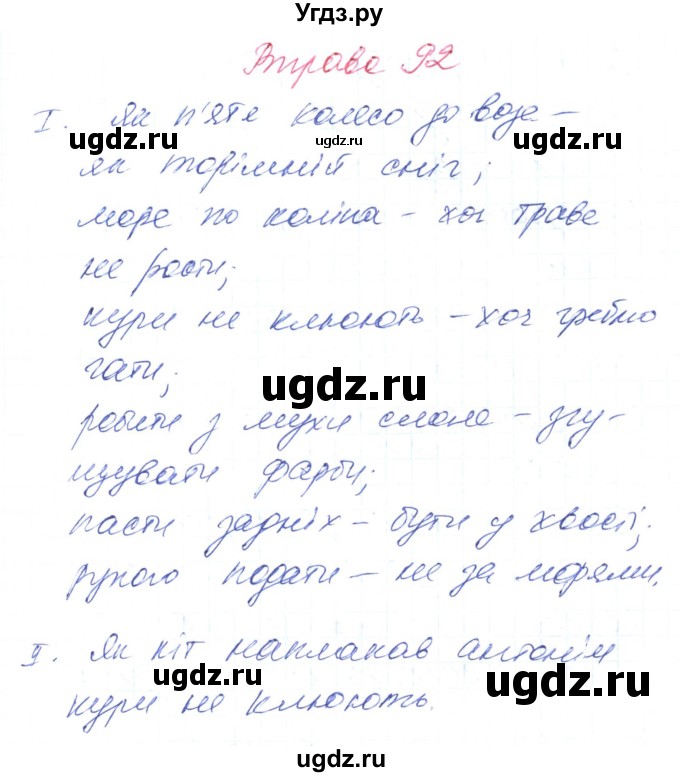 Угдз.ру
Вправа 92
I. Як п'яте колесо до воза –
ugdz.ru ugdz.ru
як торімній сніг;
море по коліна – хоч трава
ugdz.ru ugdz.ru
не рости;
кури не клюють – хоч греблю
гати;
ugdz.ru
робити з мухи слона – згу-
щувати фарби;
ugdz.ru ugdz.ru
пасти задніх – бути у хвості;
рукою подати – не за морями.
II. Як кіт наплакав антонім
ugdz.ru ugdz.ru
кури не клюють.
Угдз.ру